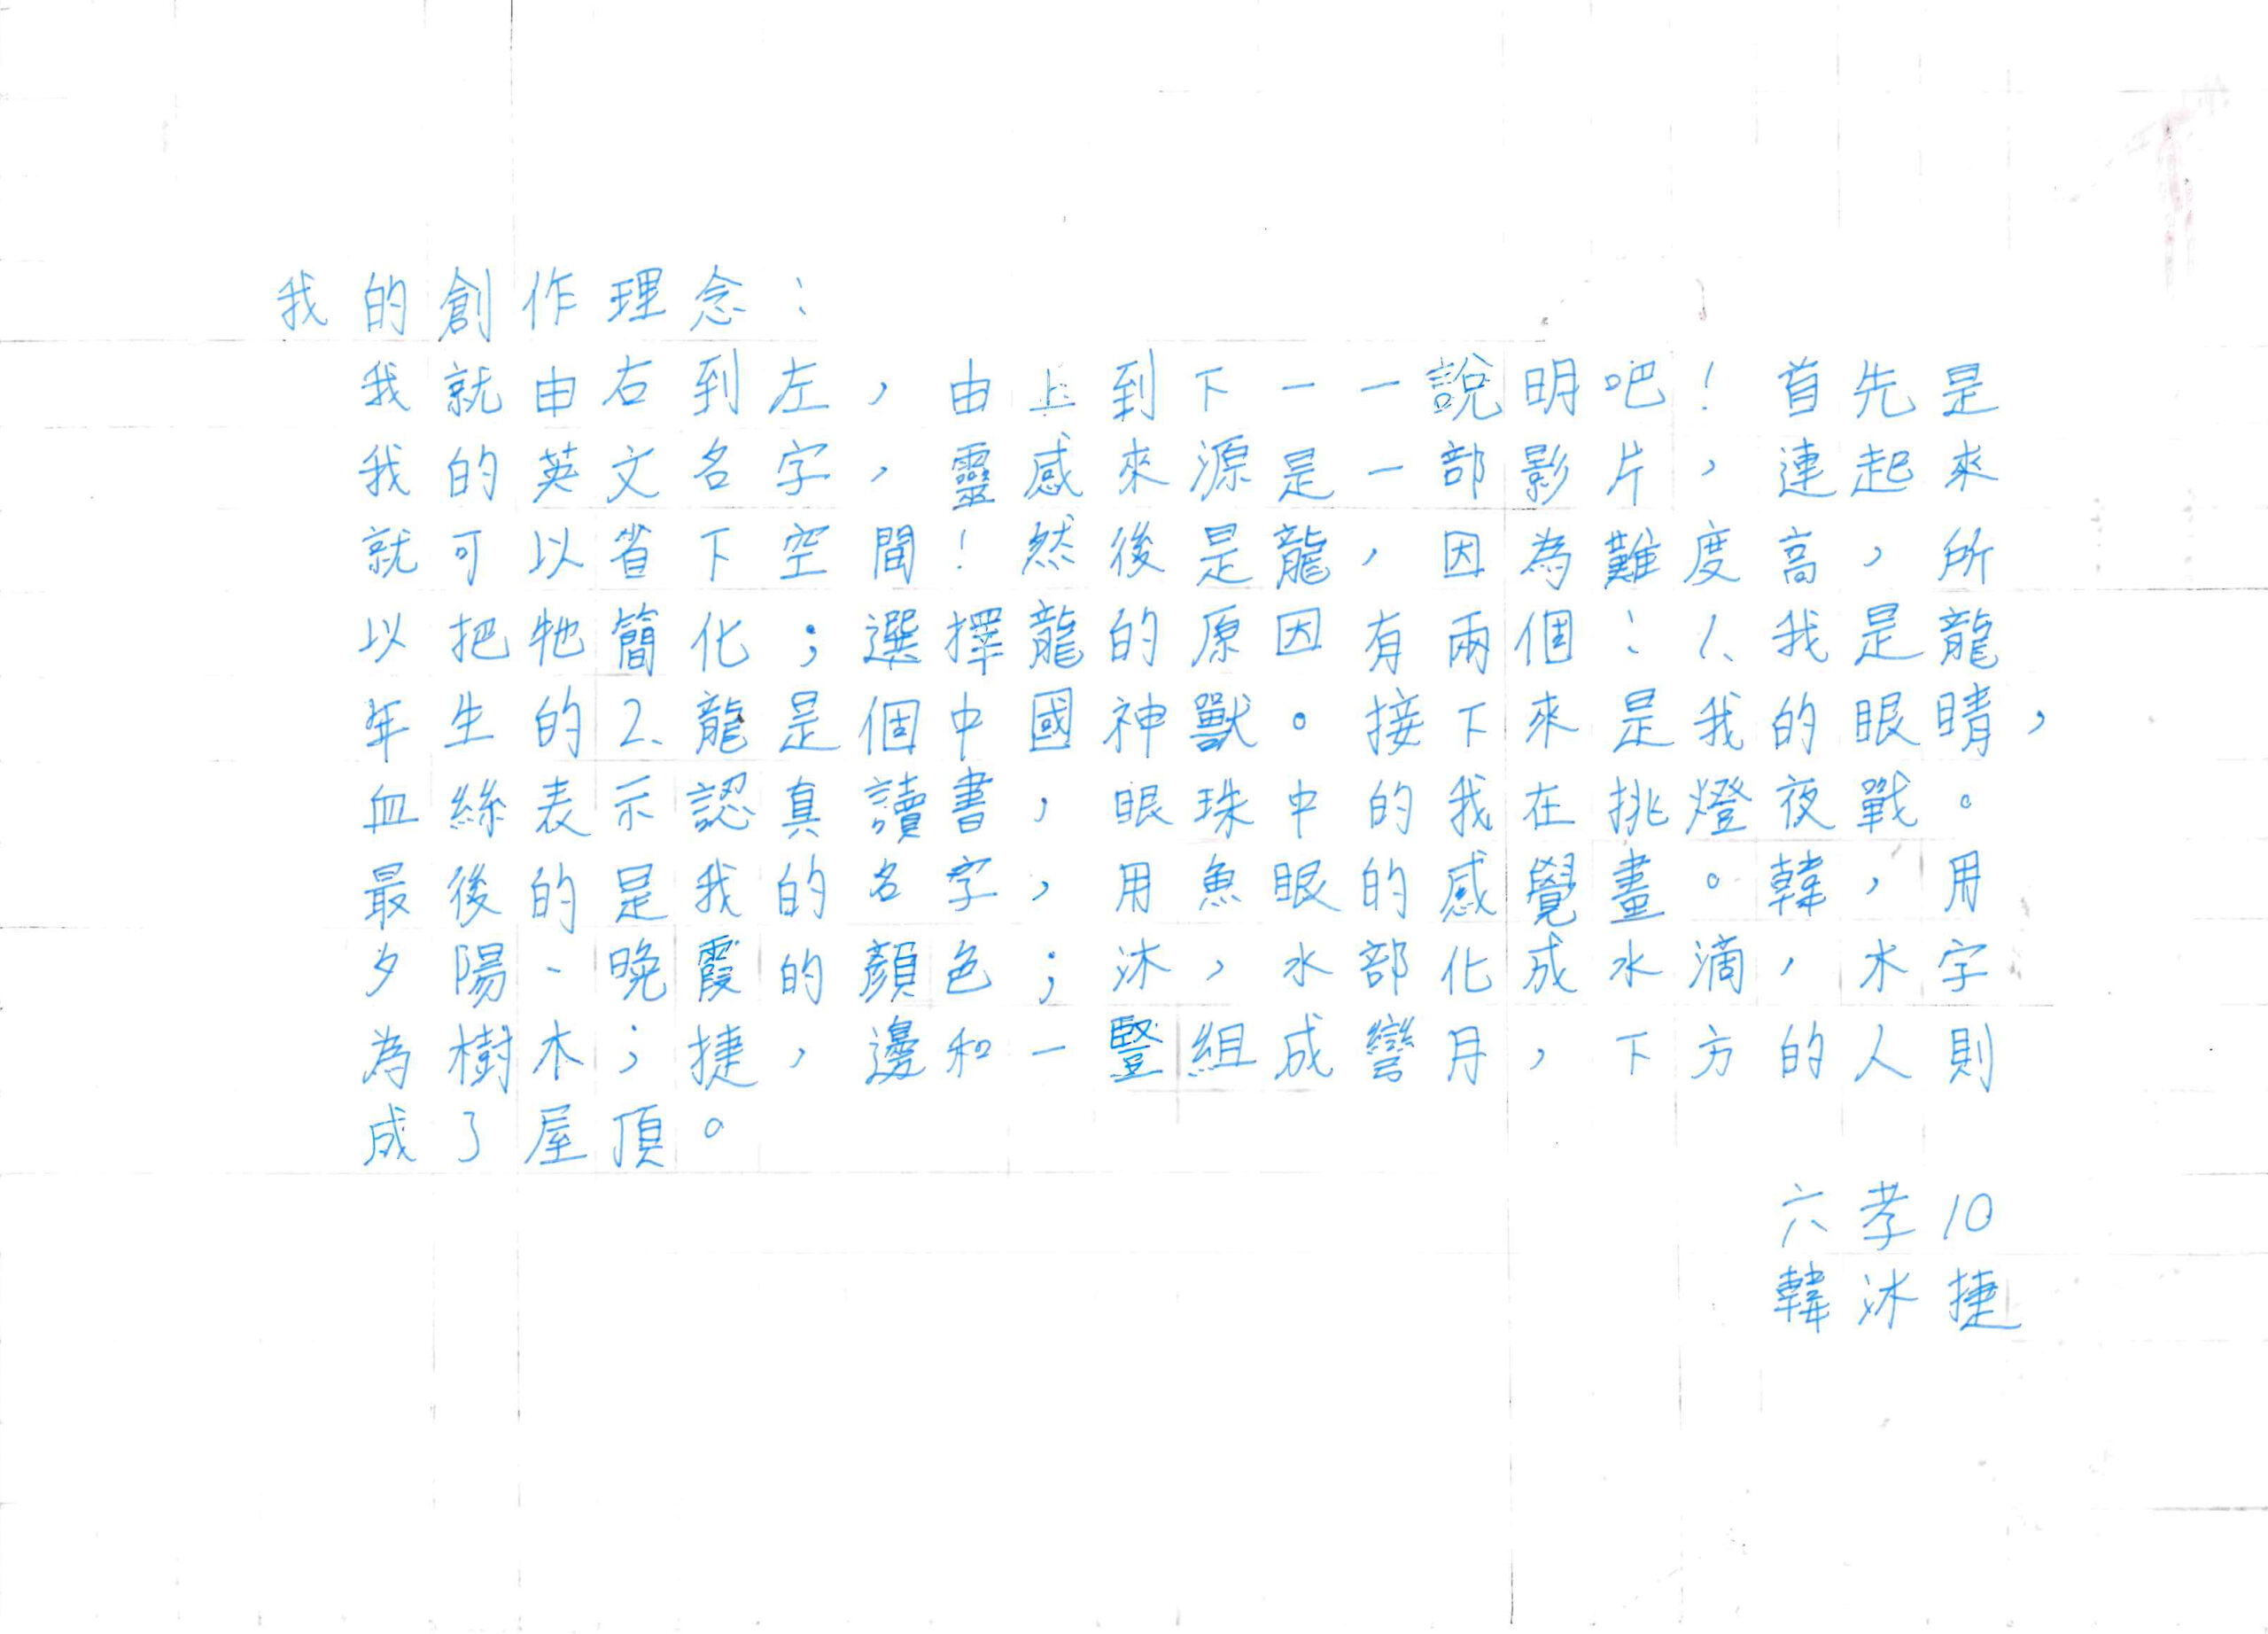 我的創作理念：
我就由右到左，由上到下一一說明吧！首先是
我的英文名字，靈感來源是一部影片，連起來
就可以省下空間！然後是龍，因為難度高，所
以把牠簡化；選擇龍的原因有兩個：1、我是龍
年生的2、龍是個中國神獸。接下來是我的眼睛，
血絲表示認真讀書，眼珠中的我在挑燈夜戰。
最後的是我的名字，用魚眼的感覺畫。韓，用
夕陽、晚霞的顏色；沐，水部化成水滴，木字
為樹木；捷，邊和一豎組成彎月，下方的人則
成了屋頂。
六孝10
韓沐捷